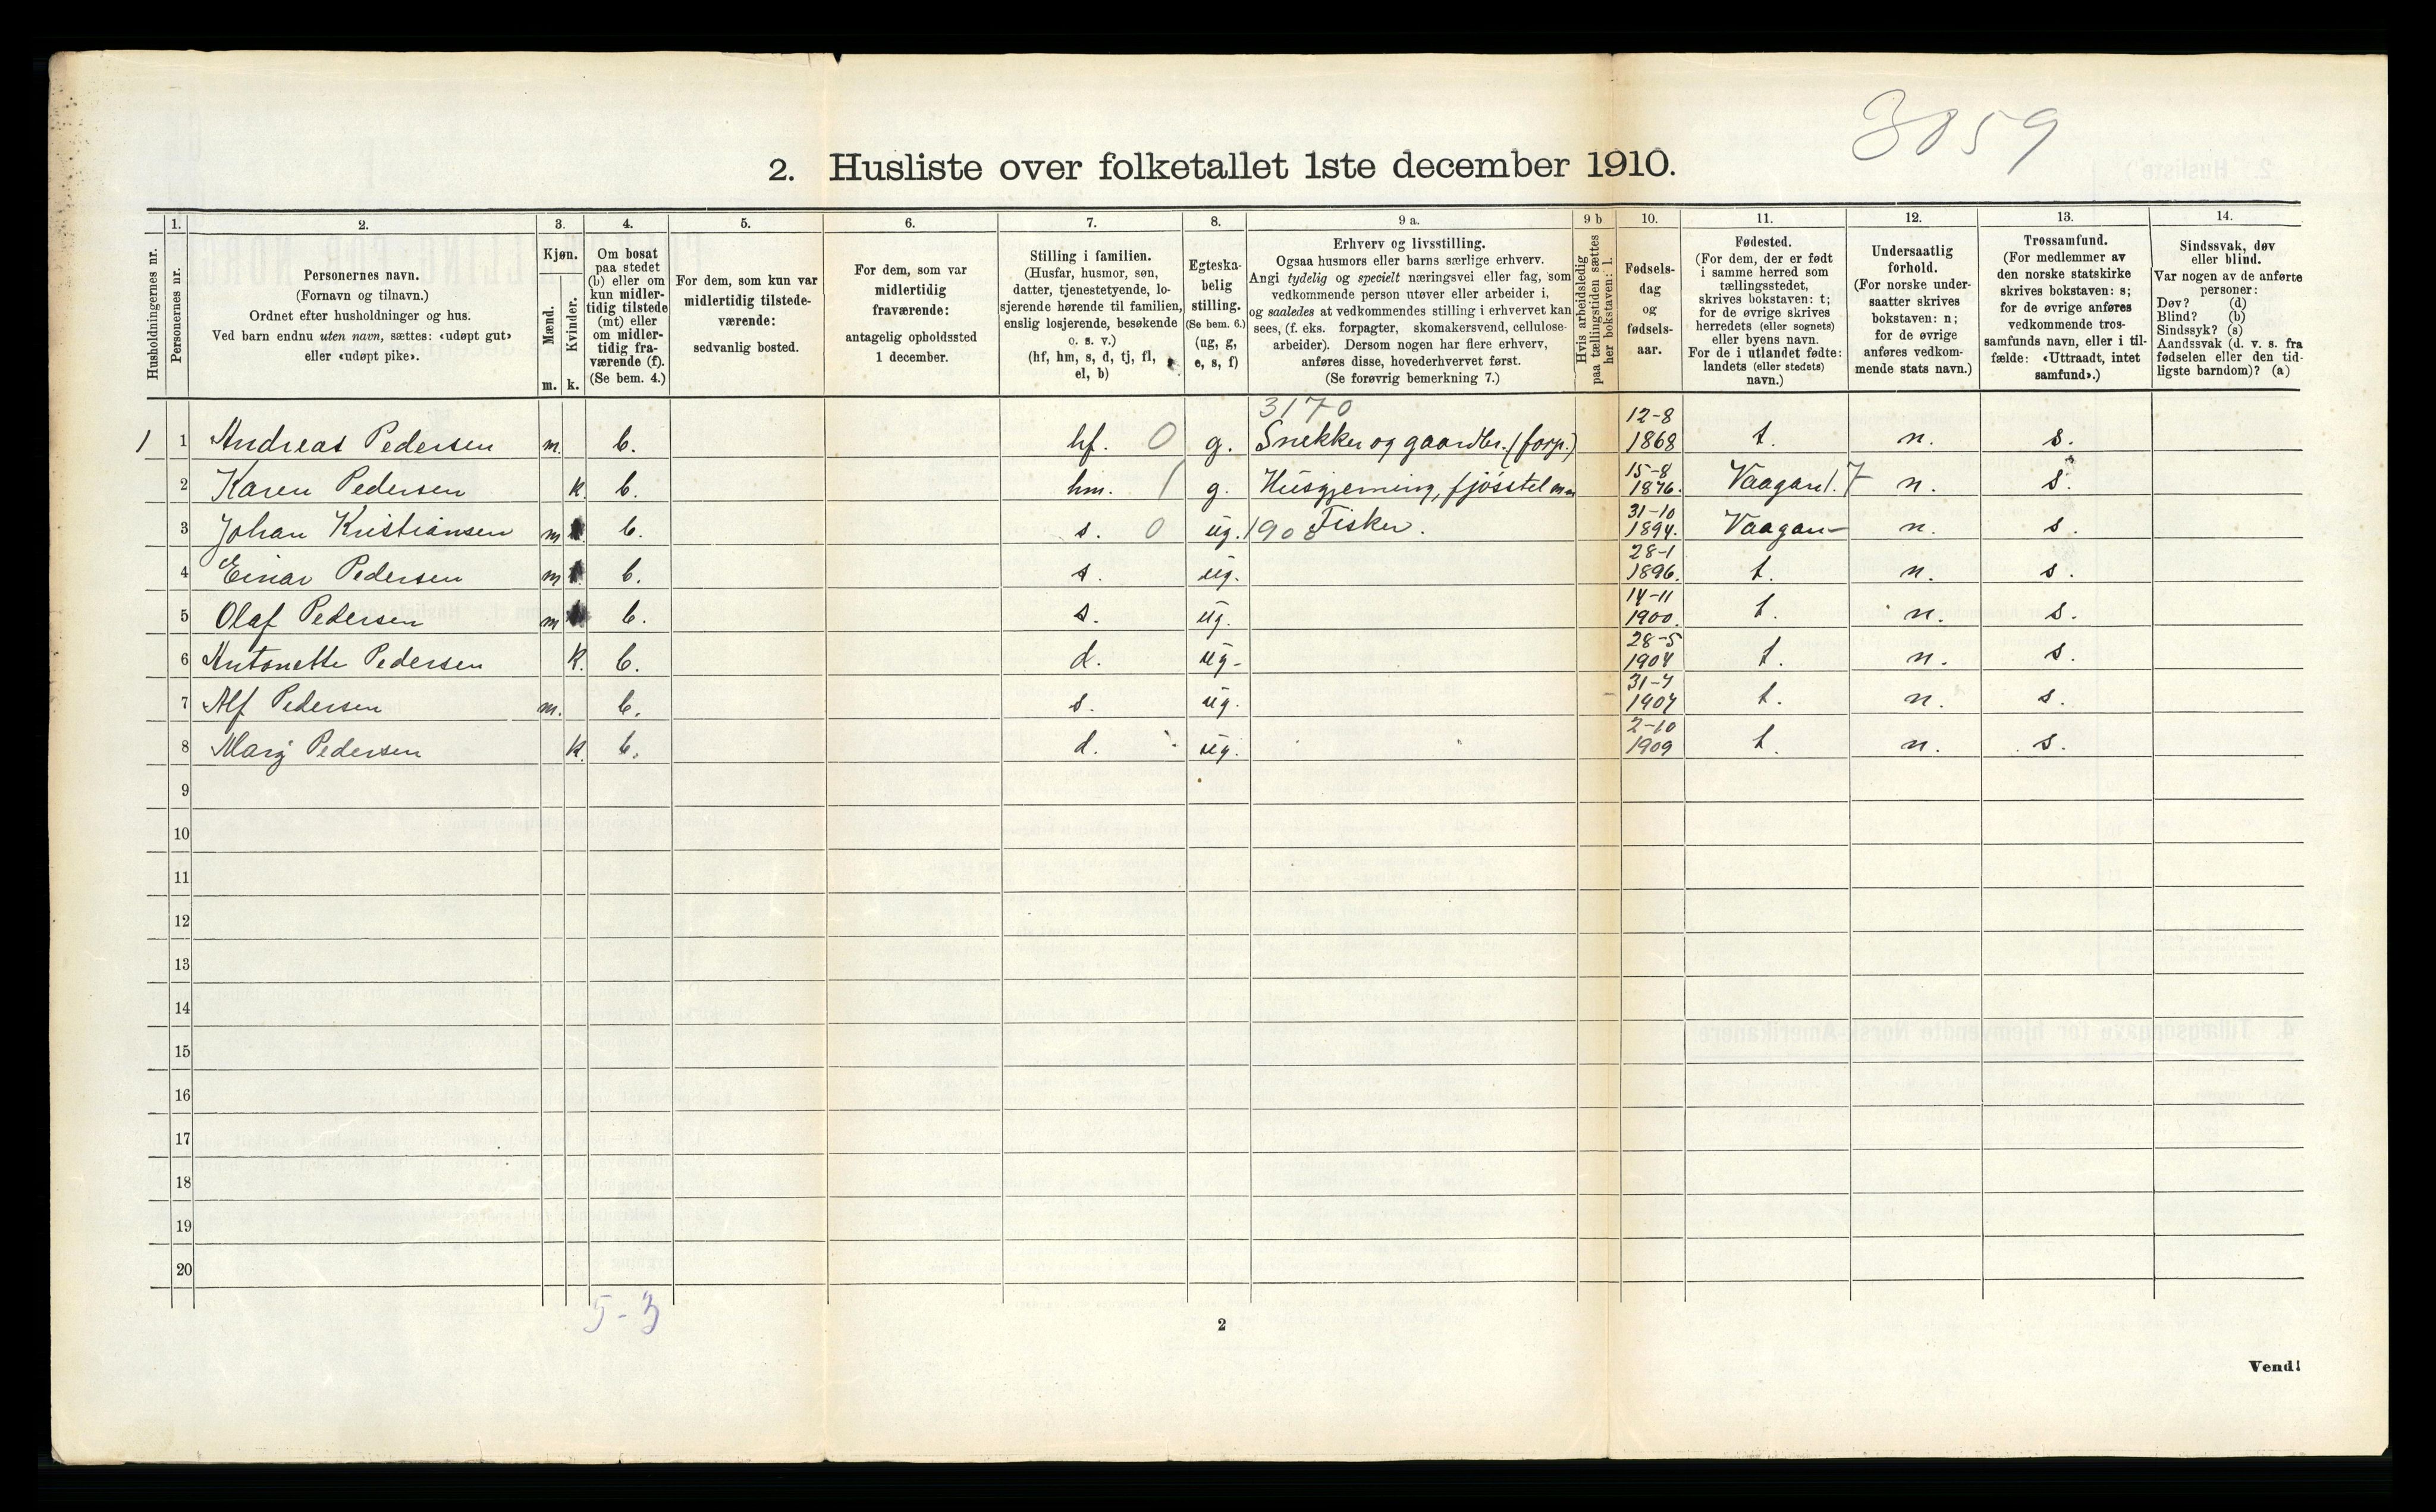 3059
2. Husliste over folketallet 1ste december 1910.
Husholdningernes nr.
1. Personernes nr.
2. Personernes navn.
(Fornavn og tilnavn.)
Ordnet efter husholdninger og hus.
Ved barn endnu uten navn, sættes: «udøpt gut»
eller «udøpt pike».
3. Kjøn.
Mænd. m.
Kvinder. k.
4. Om bosat
paa stedet
(b) eller om
kun midler-
tidig tilstede
(mt) eller
om midler-
tidig fra-
værende (f).
(Se bem. 4.)
5. For dem, som kun var
midlertidig tilstede-
værende:
sedvanlig bosted.
6. For dem, som var
midlertidig
fraværende:
antagelig opholdssted
1 december.
7. Stilling i familien.
(Husfar, husmor, søn,
datter, tjenestetyende, lo-
sjerende hørende til familien,
enslig losjerende, besøkende
o. s. v.)
(hf, hm, s, d, tj, fl,
el, b)
8. Egteska-
belig
stilling.
(Se bem. 6.)
(ug, g,
e, s, f)
9 a. Erhverv og livsstilling.
Ogsaa husmors eller barns særlige erhverv.
Angi tydelig og specielt næringsvei eller fag, som
vedkommende person utøver eller arbeider i,
og saaledes at vedkommendes stilling i erhvervet kan
sees, (f. eks. forpagter, skomakersvend, cellulose-
arbeider). Dersom nogen har flere erhverv,
anføres disse, hovederhvervet først.
(Se forøvrig bemerkning 7.)
9 b Hvis arbeidsledig
paa tællingstiden sættes
her bokstaven: l.
10. Fødsels-
dag
og
fødsels-
aar.
11. Fødested.
(For dem, der er født
i samme herred som
tællingsstedet,
skrives bokstaven: t;
for de øvrige skrives
herredets (eller sognets)
eller byens navn.
For de i utlandet fødte:
landets (eller stedets)
navn.)
12. Undersaatlig
forhold.
(For norske under-
saatter skrives
bokstaven: n;
for de øvrige
anføres vedkom-
mende stats navn.)
13. Trossamfund.
(For medlemmer av
den norske statskirke
skrives bokstaven: s;
for de øvrige anføres
vedkommende tros-
samfunds navn, eller i til-
fælde: «Uttraadt, intet
samfund».)
14. Sindssvak, døv
eller blind.
Var nogen av de anførte
personer:
Døv? (d)
Blind? (b)
Sindssyk? (s)
Aandssvak (d. v. s. fra
fødselen eller den tid-
ligste barndom)? (a)
3170 12-8
1 1 Andreas Pedersen m. b. hf. 0 g. Snekker og gaardbr. (forp.) 1868 t. n. s.
15-8
2 Karen Pedersen k. b. hm. 1 g. Husgjerning, fjøsstel m m 1876. Vaagan 1. 7 n. s.
31-10
3 Johan Kristiansen m b. s. 0 ug. 1908 Fisker. 1894. Vaagan n. s.
28-1
4 Einar Pedersen m b. s. ug. 1896. t. n. s.
14-11
5 Olaf Pedersen m b. s. ug. 1900. t. n. s.
28-5
6 Antonette Pedersen k. b. d. ug. 1904 t. n. s.
31-7
7 Alf Pedersen m. b. s. ug. 1907 t. n. s.
2-10
8 Mary Pedersen k. b. d. ug. 1909 t. n. s.
9
10
11
12
13
14
15
16
17
18
19
20
5-3
2
Vend!